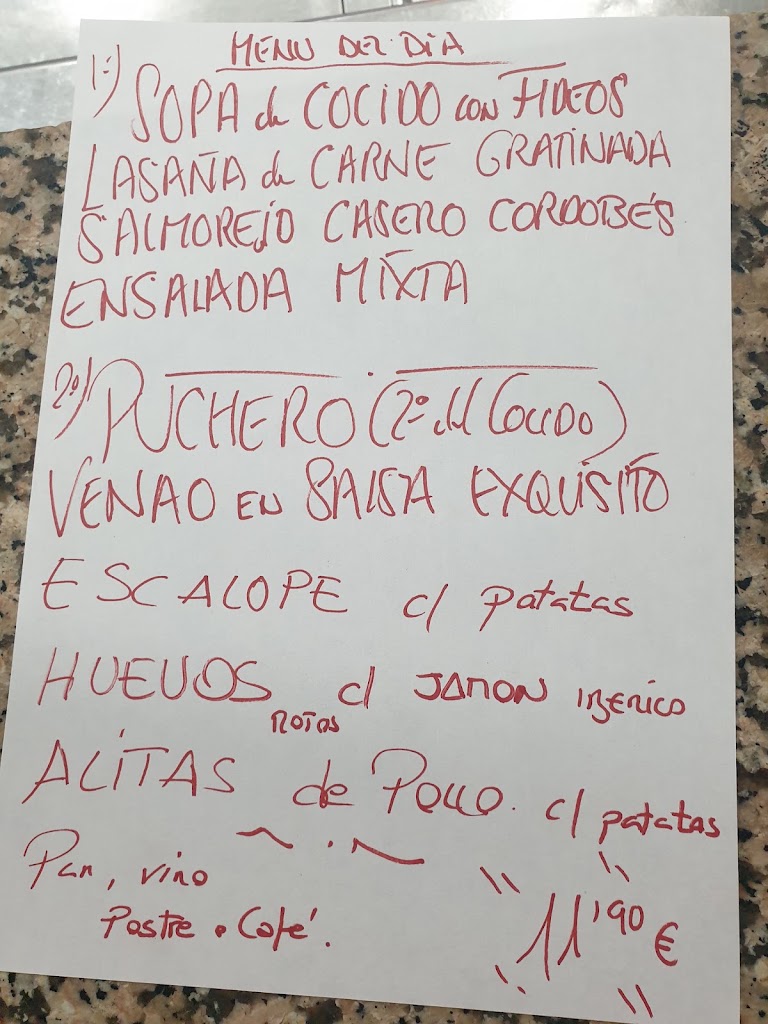 MENU DEL DIA
1º) SOPA de COCIDO con FIDEOS
LASAÑA de CARNE GRATINADA
SALMOREJO CASERO CORDOBÉS
ENSALADA MIXTA
2º) PUCHERO (2º del Cocido)
VENAO EN SALSA EXQUISITO
ESCALOPE c/ patatas
HUEVOS ROTOS c/ JAMON IBERICO
ALITAS de Pollo. c/ patatas
Pan, vino
Postre o Café.
11'90 €